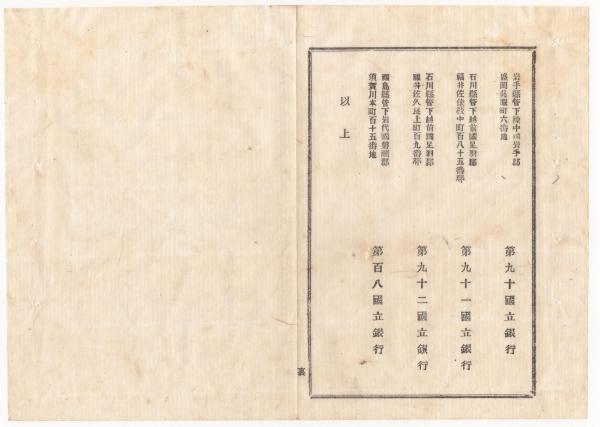 岩手縣管下陸中國岩手郡
盛岡呉服町六番地
第九十國立銀行
石川縣管下越前國足羽郡
福井佐佳枝中町百八十五番邸
第九十一國立銀行
石川縣管下越前國足羽郡
福井佐久良上町百九番邸
第九十二國立銀行
福島縣管下岩代國磐瀬郡
須賀川本町百十五番地
第百八國立銀行
以上
裏